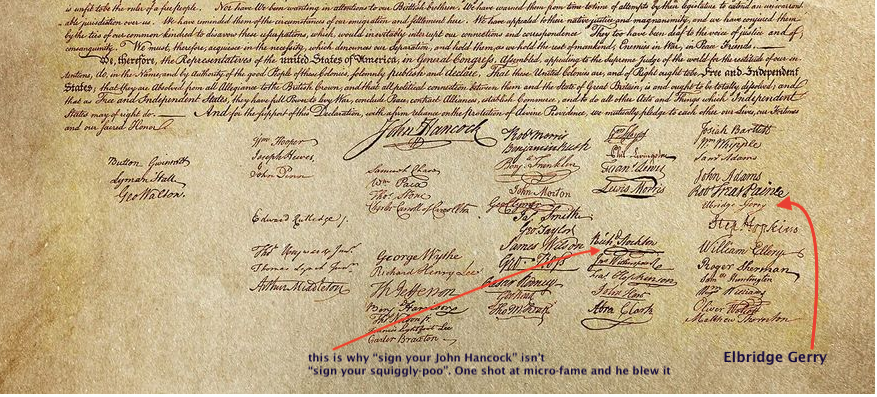 is unfit to be the ruler of a free people. Nor have We been wanting in attentions to our Brittish brethren. We have warned them from time to time of attempts by their legislature to extend an unwarrant-
able jurisdiction over us. We have reminded them of the circumstances of our emigration and settlement here. We have appealed to their native justice and magnanimity, and we have conjured them
by the ties of our common kindred to disavow these usurpations, which, would inevitably interrupt our connections and correspondence. They too have been deaf to the voice of justice and of
consanguinity. We must, therefore, acquiesce in the necessity, which denounces our Separation, and hold them, as we hold the rest of mankind, Enemies in War, in Peace Friends.
We, therefore, the Representatives of the united States of America, in General Congress, Assembled, appealing to the Supreme Judge of the world for the rectitude of our in-
tentions, do, in the Name, and by Authority of the good People of these Colonies, solemnly publish and declare, That these United Colonies are, and of Right ought to be Free and Independent
States; that they are Absolved from all Allegiance to the British Crown, and that all political connection between them and the State of Great Britain, is and ought to be totally dissolved; and
that as Free and Independent States, they have full Power to levy War, conclude Peace, contract Alliances, establish Commerce, and to do all other Acts and Things which Independent
States may of right do. And for the support of this Declaration, with a firm reliance on the Protection of divine Providence, we mutually pledge to each other our Lives, our Fortunes
and our sacred Honor.
John Hancock
Button Gwinnett
Lyman Hall
Geo Walton.
Wm Hooper
Joseph Hewes,
John Penn
Edward Rutledge /.
Thos Heyward Junr.
Thomas Lynch Junr.
Arthur Middleton
Samuel Chase
Wm Paca
Thos Stone
Charles Carroll of Carrollton
George Wythe
Richard Henry Lee
Th Jefferson
Benj Harrison
Thos Nelson jr.
Francis Lightfoot Lee
Carter Braxton
Robt Morris
Benjamin Rush
Benj Franklin
John Morton
Geo Clymer
Jas Smith
Geo Taylor
James Wilson
Geo Ross
Caesar Rodney
Geo Read
Tho M:Kean
Phil. Livingston
Lewis Morris
Richd Stockton
Jno Witherspoon
Fras Hopkinson
John Hart
Abra Clark
Josiah Bartlett
Wm Whipple
Saml Adams
John Adams
Robt Treat Paine
Elbridge Gerry
Step Hopkins
William Ellery
Roger Sherman
Samel Huntington
Wm Williams
Oliver Wolcott
Matthew Thornton
this is why “sign your John Hancock” isn't
“sign your squiggly-poo”. One shot at micro-fame and he blew it
Elbridge Gerry